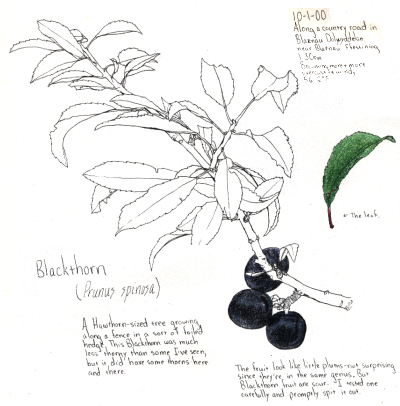 10-1-00
Along a country road in
Blaenau Dolwyddelan
near Blaenau Ffestiniog
1:30pm
becoming more + more
overcast + windy
56°F
← The leaf.
Blackthorn
(Prunus spinosa)
A Hawthorn-sized tree growing
along a fence in a sort of failed
hedge. This Blackthorn was much
less thorny than some I've seen,
but it did have some thorns here
and there.
The fruit look like little plums-not surprising
since they're in the same genus. But
Blackthorn fruit are sour. I tested one
carefully and promptly spit it out.